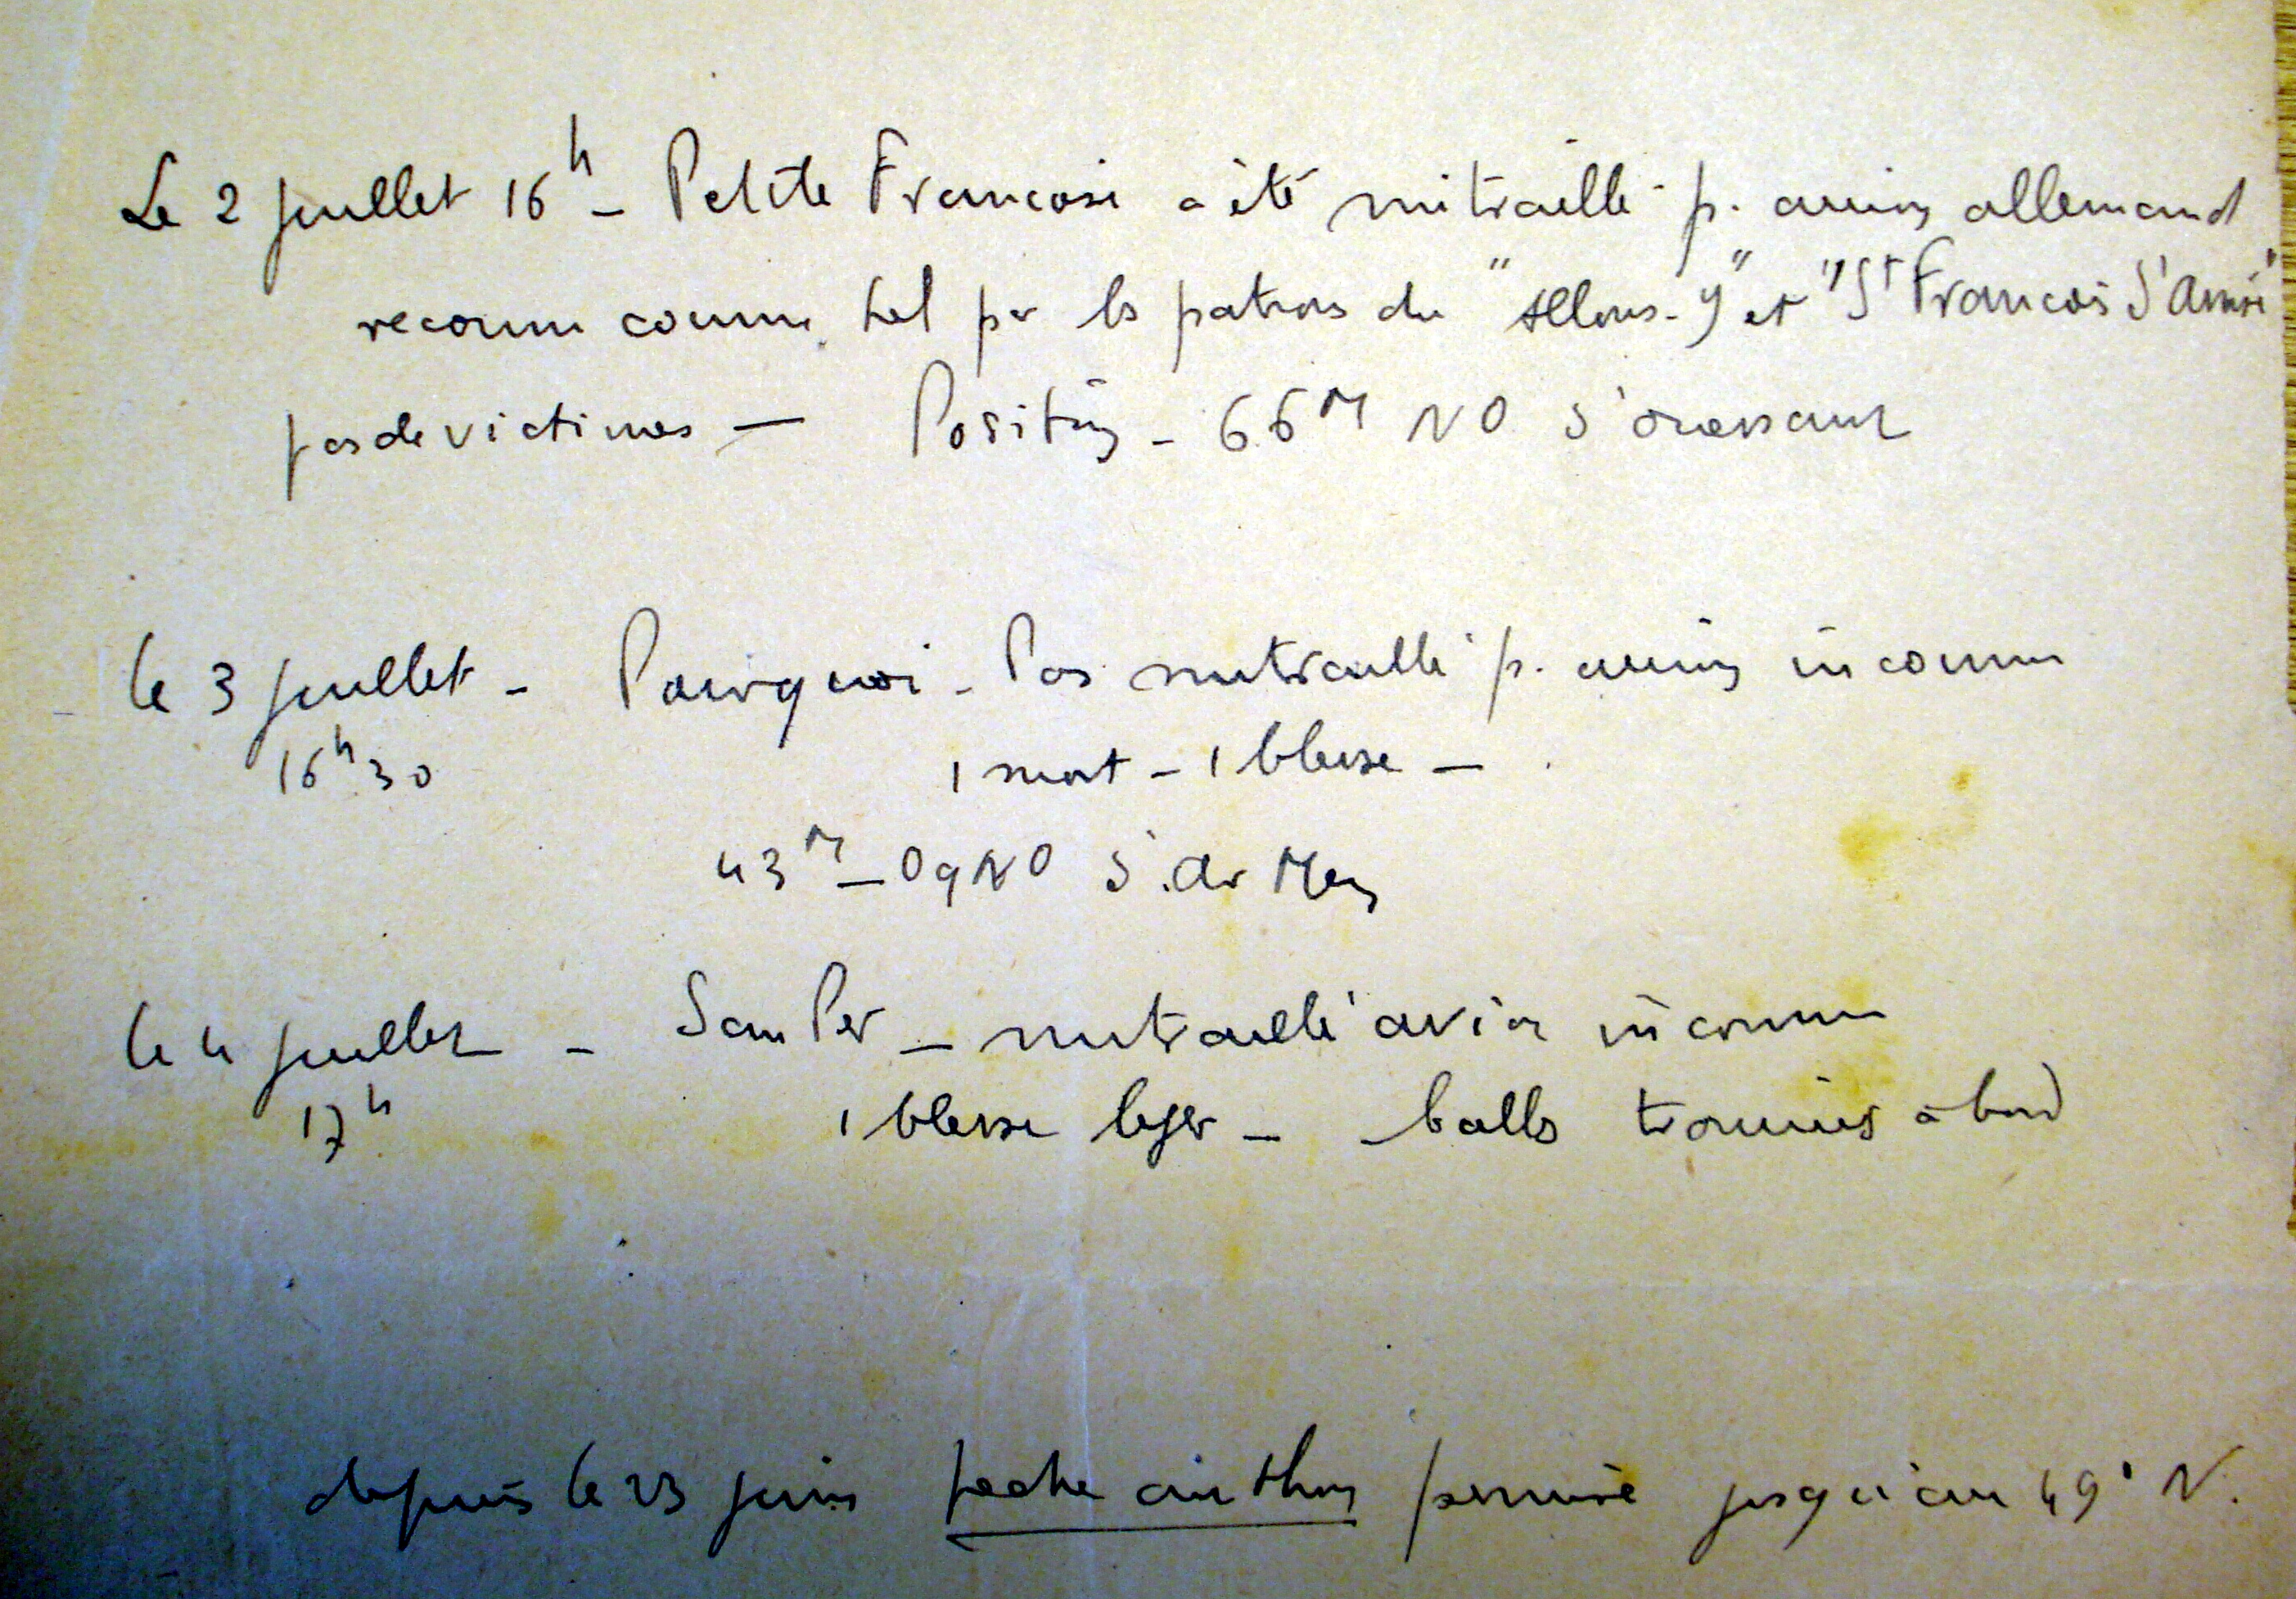 Le 2 juillet 16h - Petite Francoise a été mitraillé p. avion allemand
reconnu comme tel par les patrons du "Allons-y" et "St Francois d'Assise"
pas de victimes — Position - 66M NO d'Ouessant
le 3 juillet - Pourquoi-Pas mitraillé p. avion inconnu
16h30 1 mort - 1 blessé -
43M - O q NO d'Ar Men
le 4 juillet - San Per - mitraillé avion inconnu
17h 1 blessé leger - balles trouvées à bord
depuis le 23 juin peche au thon permise jusqu'au 49° N.